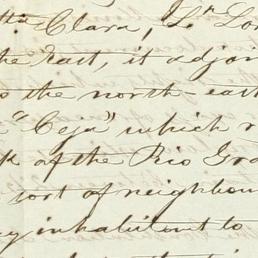 Clara, Sr. Lo
the East, it adjoin
the north-east
"Ceja" which r
k of the Rio Gra
sort of neighbou
inhabitent to